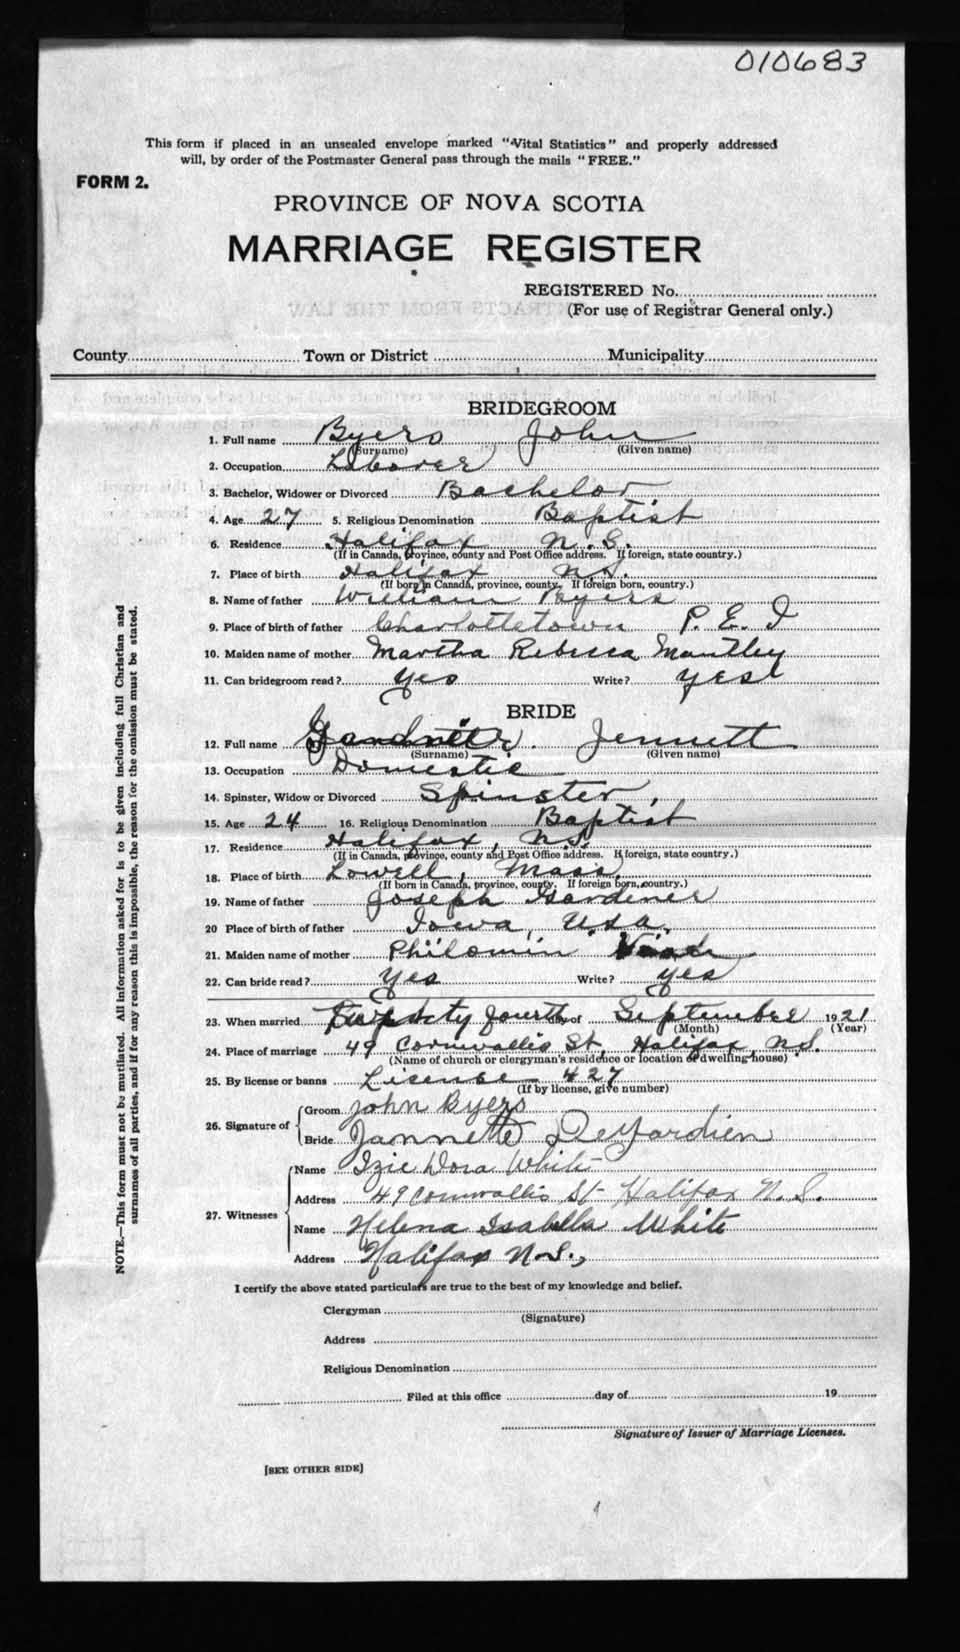 010683
This form if placed in an unsealed envelope marked "Vital Statistics" and properly addressed
will, by order of the Postmaster General pass through the mails "FREE."
FORM 2.
PROVINCE OF NOVA SCOTIA
MARRIAGE REGISTER
REGISTERED No.
(For use of Registrar General only.)
County Town or District Municipality
BRIDEGROOM
1. Full name Byers John
(Surname) (Given name)
2. Occupation Laborer
3. Bachelor, Widower or Divorced Bachelor
4. Age 27 5. Religious Denomination Baptist
6. Residence Halifax N.S.
(If in Canada, province, county and Post Office address. If foreign, state country.)
7. Place of birth Halifax N.S.
(If born in Canada, province, county. If foreign born, country.)
8. Name of father William Byers
9. Place of birth of father Charlottetown P. E. I
10. Maiden name of mother Martha Rebecca Mantley
11. Can bridegroom read? yes Write? yes
BRIDE
12. Full name Jennett
(Surname) (Given name)
13. Occupation Domestic
14. Spinster, Widow or Divorced Spinster,
15. Age 24 16. Religious Denomination Baptist
17. Residence Halifax, N.S.
(If in Canada, province, county and Post Office address. If foreign, state country.)
18. Place of birth Lowell, Mass.
(If born in Canada, province, county. If foreign born, country.)
19. Name of father Joseph Gardener
20 Place of birth of father Iowa, U.S.A.
21. Maiden name of mother Philomin
22. Can bride read? Yes Write? yes
23. When married fourth day of September 1921
(Month) (Year)
24. Place of marriage 49 Cornwallis St, Halifax, N.S.
(Name of church or clergyman's residence or location of dwelling house)
25. By license or banns License 427
(If by license, give number)
26. Signature of Groom John Byers
Bride Jannette DeYardien
27. Witnesses Name Izie Dora White
Address 49 Cornwallis St Halifax N.S.
Name Helena Isabella White
Address Halifax N.S.,
I certify the above stated particulars are true to the best of my knowledge and belief.
Clergyman
(Signature)
Address
Religious Denomination
Filed at this office day of 19
Signature of Issuer of Marriage Licenses.
[SEE OTHER SIDE]
NOTE.—This form must not be mutilated. All information asked for is to be given including full Christian and
surnames of all parties, and if for any reason this is impossible, the reason for the omission must be stated.